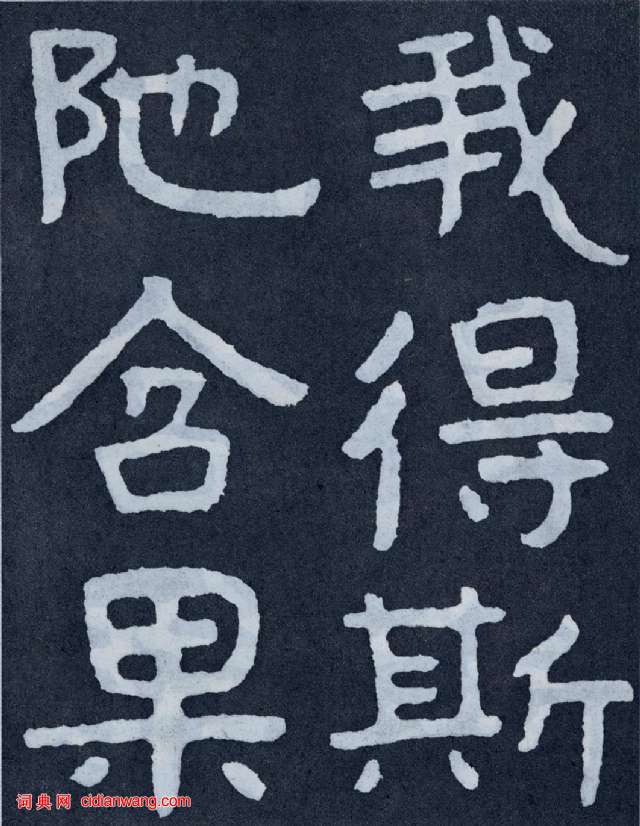 我得斯
阤含果
词典网 cidianwang.com